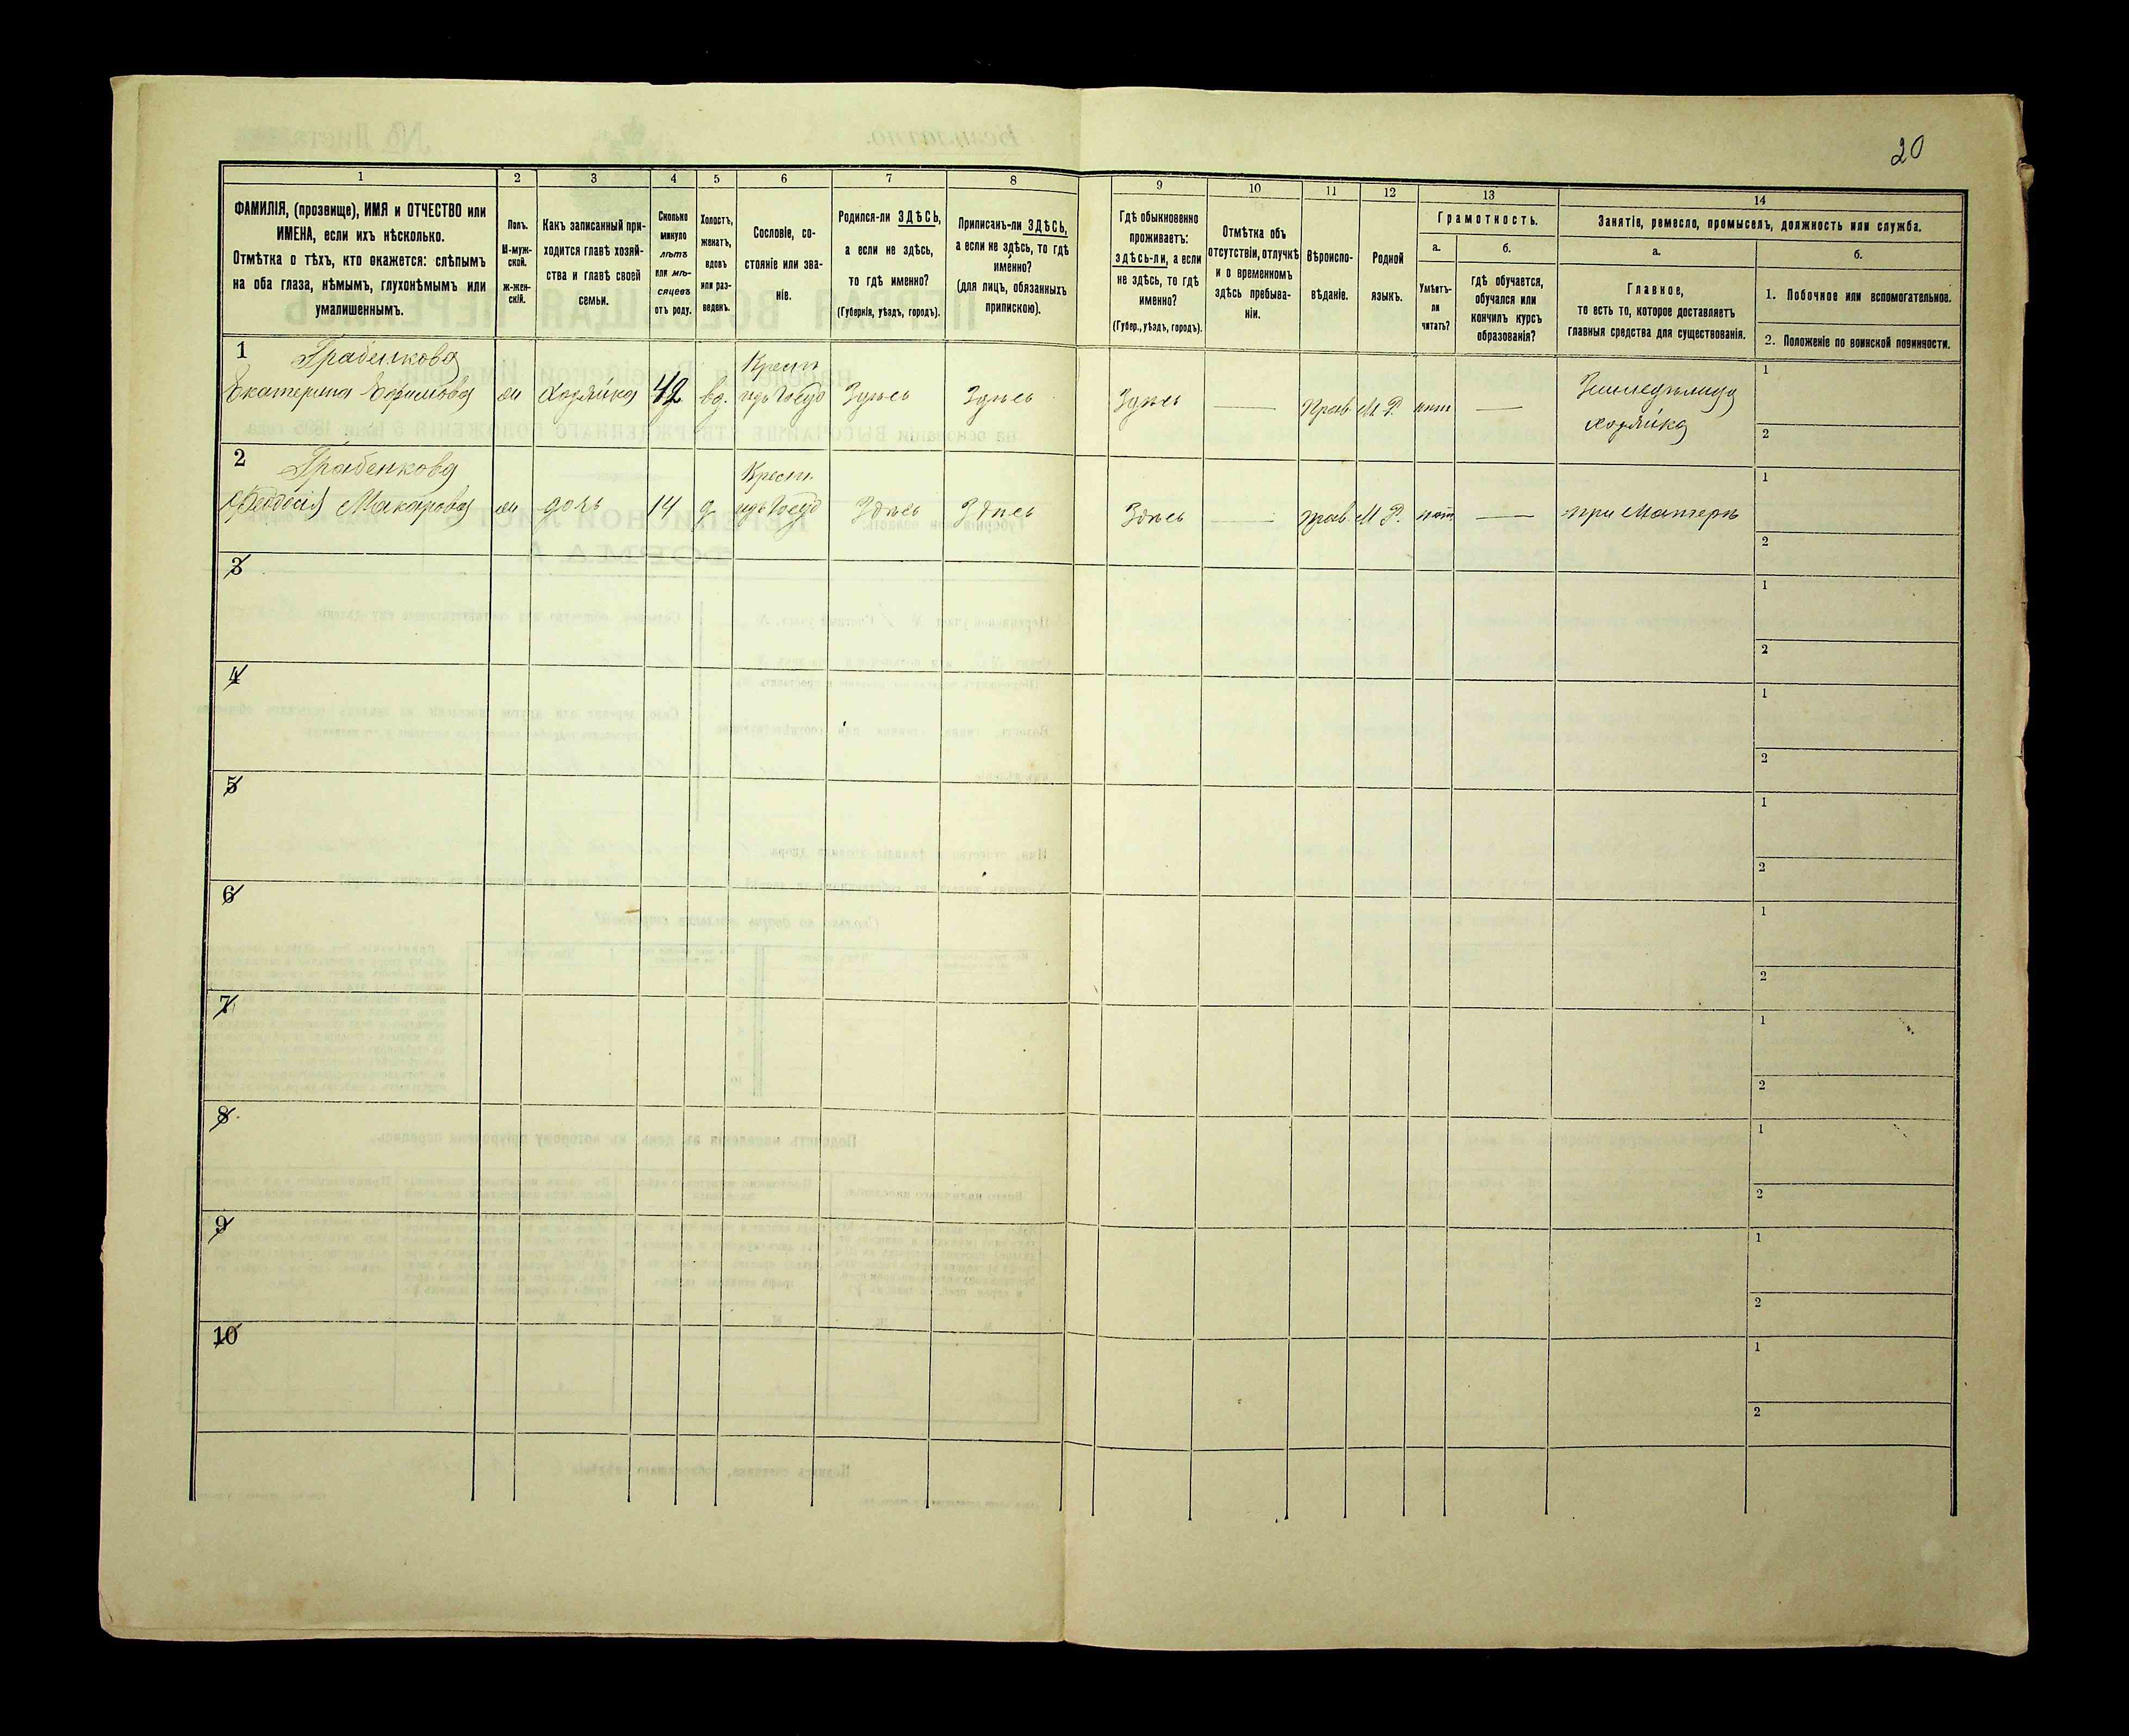 20
1 2 3 4 5 6 7 8 9 10 11 12 13 14
ФАМИЛІЯ, (прозвище), ИМЯ и ОТЧЕСТВО или
ИМЕНА, если ихъ нѣсколько.
Отмѣтка о тѣхъ, кто окажется: слѣпымъ
на оба глаза, нѣмымъ, глухонѣмымъ или
умалишеннымъ.
Полъ.
М-муж-
ской.
ж-жен-
скій.
Какъ записанный при-
ходится главѣ хозяй-
ства и главѣ своей
семьи.
Сколько
минуло
лѣтъ
или мѣ-
сяцевъ
отъ роду.
Холостъ,
женатъ,
вдовъ
или раз-
веденъ.
Сословіе, со-
стояніе или зва-
ніе.
Родился-ли ЗДѢСЬ,
а если не здѣсь,
то гдѣ именно?
(Губернія, уѣздъ, городъ).
Приписанъ-ли ЗДѢСЬ,
а если не здѣсь, то гдѣ
именно?
(для лицъ, обязанныхъ
припискою).
Гдѣ обыкновенно
проживаетъ:
здѣсь-ли, а если
не здѣсь, то гдѣ
именно?
(Губер., уѣздъ, городъ).
Отмѣтка объ
отсутствіи, отлучкѣ
и о временномъ
здѣсь пребыва-
ніи.
Вѣроиспо-
вѣданіе.
Родной
языкъ.
Грамотность.
а.
Умѣетъ-
ли
читать?
б.
гдѣ обучается,
обучался или
кончилъ курсъ
образованія?
Занятіе, ремесло, промыселъ, должность или служба.
а.
Главное,
то есть то, которое доставляетъ
главныя средства для существованія.
б.
1. Побочное или вспомогательное.
2. Положеніе по воинской повинности.
1 Грабенкова
Екатерина Ефимова
хозяйка 42 вд.
Крест.
Здѣсь Здѣсь Здѣсь — Прав. М. Р. нѣт —
хозяйка
1
2
2 Грабенкова
Ѳеодосія Макарова
дочь 14 д
Крест.
Здѣсь Здѣсь Здѣсь — прав. М. Р. нѣт — при матери
1
2
3
1
2
4
1
2
5
1
2
6
1
2
7
1
2
8
1
2
9
1
2
10
1
2